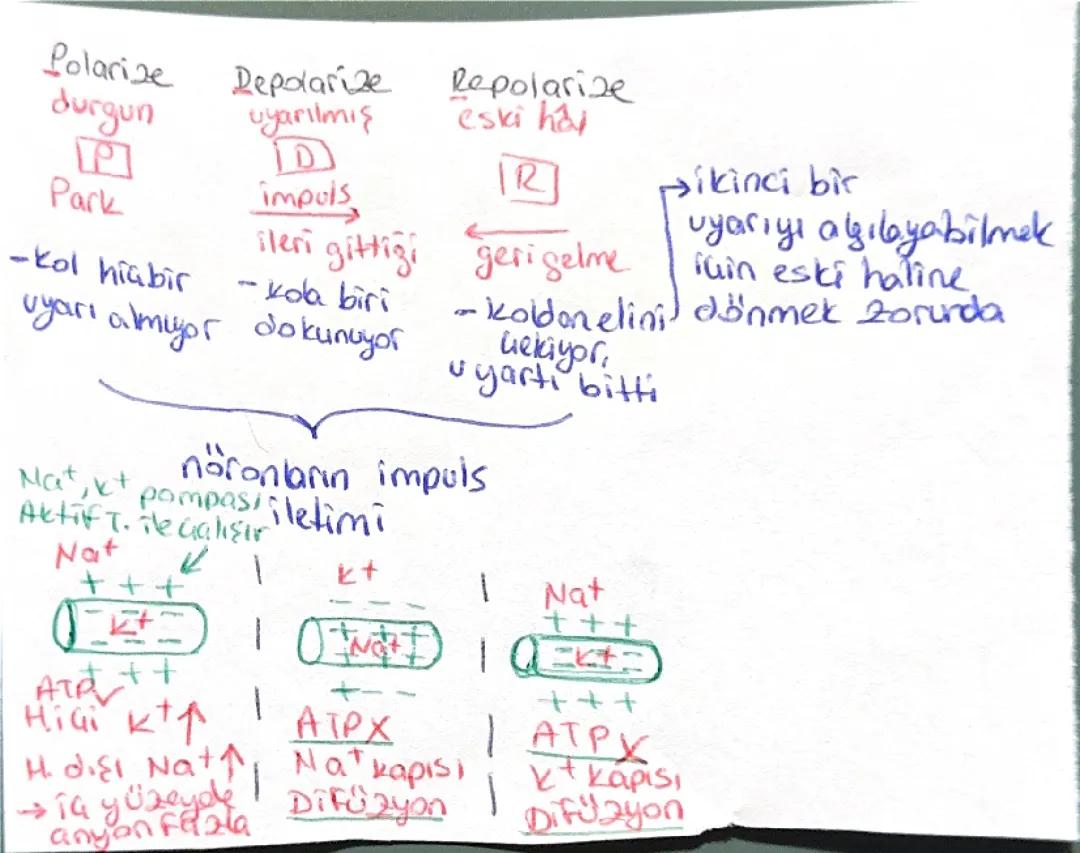 Polarize
durgun
P
Park
-kol hiçbir
uyarı almıyor
Depolarize
uyarılmış
D
impuls
ileri gittiği
-kola biri
dokunuyor
Repolarize
eski hâl
R
geri gelme
-koldan elini
çekiyor,
uyartı bitti
→ikinci bir
uyarıyı algılayabilmek
için eski haline
dönmek zorunda
nöronların impuls
iletimi
Na+, K+ pompası
Aktif T. ile çalışır
Na+
+ + +
- - -
K+
- - -
+ + +
ATP✓
H.içi K+↑
H. dışı Na+↑
→ iç yüzeyde
anyon fazla
K+
- - - -
+ + +
Na+
+ - -
ATP X
Na+ kapısı
Difüzyon
Na+
+ + +
K+
+ + +
ATP X
K+ kapısı
Difüzyon